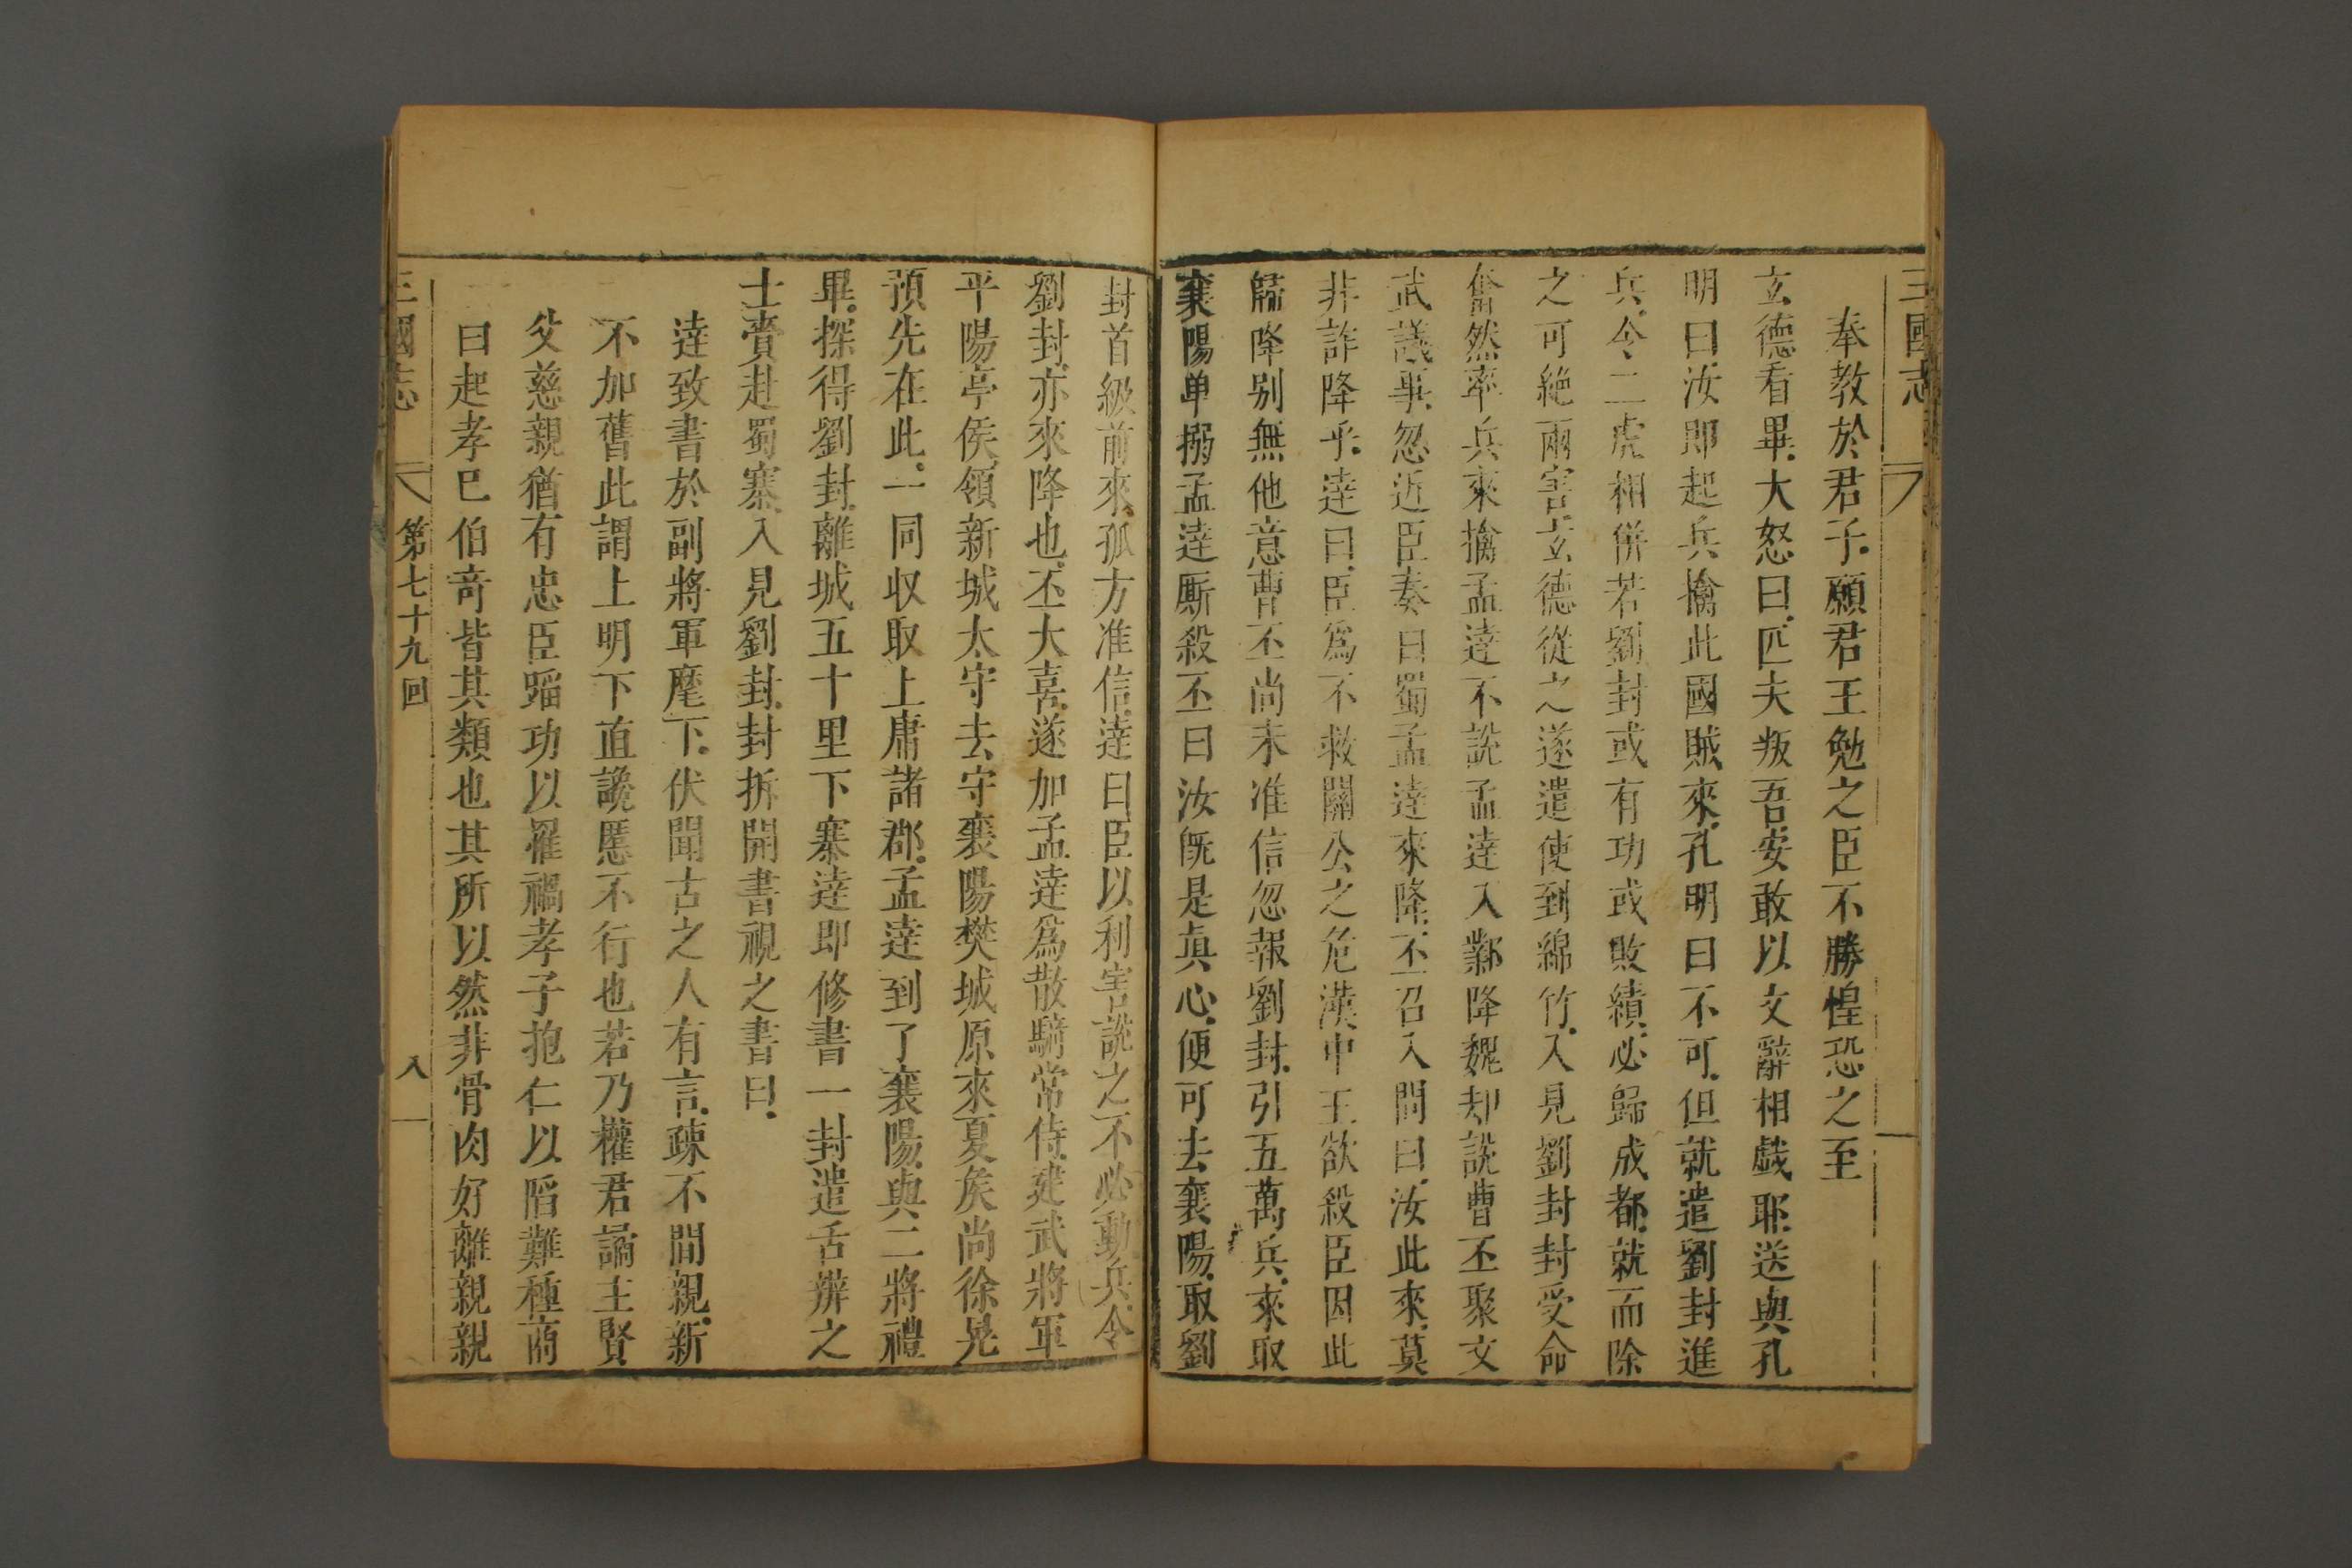 三國志
奉教於君子.願君王勉之臣不勝惶恐之至
玄德看畢.大怒曰.匹夫叛吾.安敢以文辭相戲耶.送與孔
明曰.汝即起兵擒此國賊來.孔明曰不可.但就遣劉封進
兵.令二虎相併若劉封或有功或敗績.必歸成都.就而除
之可絶兩害.玄德從之遂遣使到綿竹.入見劉封封受命
奮然率兵來擒孟達不說孟達入鄴降魏却說曹丕聚文
武議事.忽近臣奏曰蜀孟達來降.丕召入問曰.汝此來.莫
非詐降乎.達曰.臣爲不救關公之危漢中王欲殺臣因此
歸降别無他意曹丕尚未准信忽報劉封.引五萬兵.來取
襄陽单搦孟達厮殺丕曰汝旣是眞心.便可去襄陽.取劉
封首級前來.孤方准信.達曰臣以利害說之不必動兵.令
劉封.亦來降也.丕大喜.遂加孟達爲散騎常侍.建武將軍
平陽亭侯.領新城太守去守襄陽樊城原來夏矦尚徐晃
預先在此.一同収取上庸諸郡.孟達到了襄陽.與二將禮
畢.探得劉封.離城五十里下寨達即修書一封遣舌辨之
士賫赴蜀寨.入見劉封.封拆開書視之書曰.
達致書於副將軍麾下.伏聞古之人有言.疎不間親.新
不加舊此謂上明下直讒慝不行也若乃權君譎主賢
父慈親猶有忠臣蹈功以罹禍孝子抱仁以陷難種商
曰起孝已伯竒皆其類也其所以然非骨肉好離親親
三國志
第七十九回
八